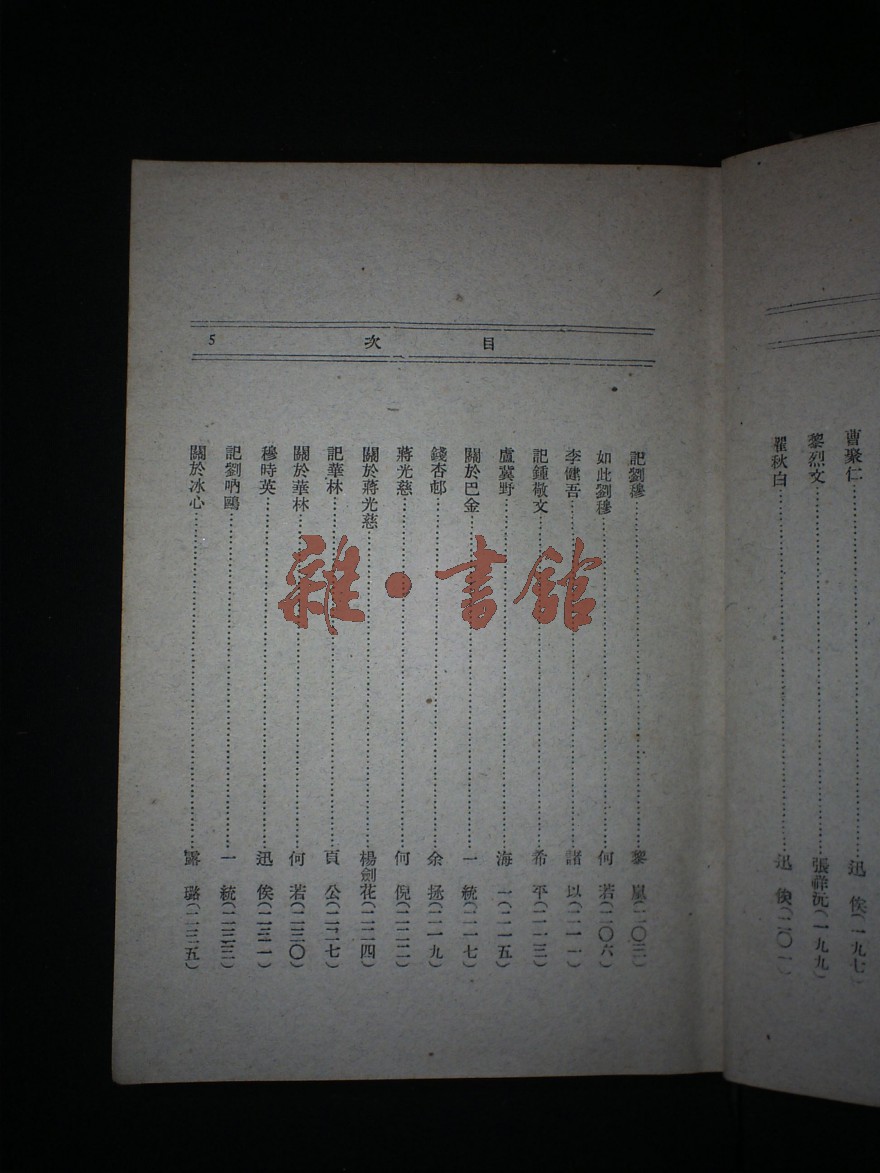 曹聚仁……迅俟(一九七)
黎烈文……張祥沅(一九九)
瞿秋白……迅俟(二〇一)
目次
5
記劉穆……黎嵐(二〇三)
如此劉穆……何若(二〇六)
李健吾……諸以(二一一)
記鍾敬文……希平(二一三)
盧冀野……海一(二一五)
關於巴金……一統(二一七)
錢杏邨……余拯(二一九)
蔣光慈……何倪(二二二)
關於蔣光慈……楊劍花(二二四)
記華林……頁公(二二七)
關於華林……何若(二三〇)
穆時英……迅俟(二三一)
記劉吶鷗……一統(二三三)
關於冰心……露璐(二三五)
雜·書館